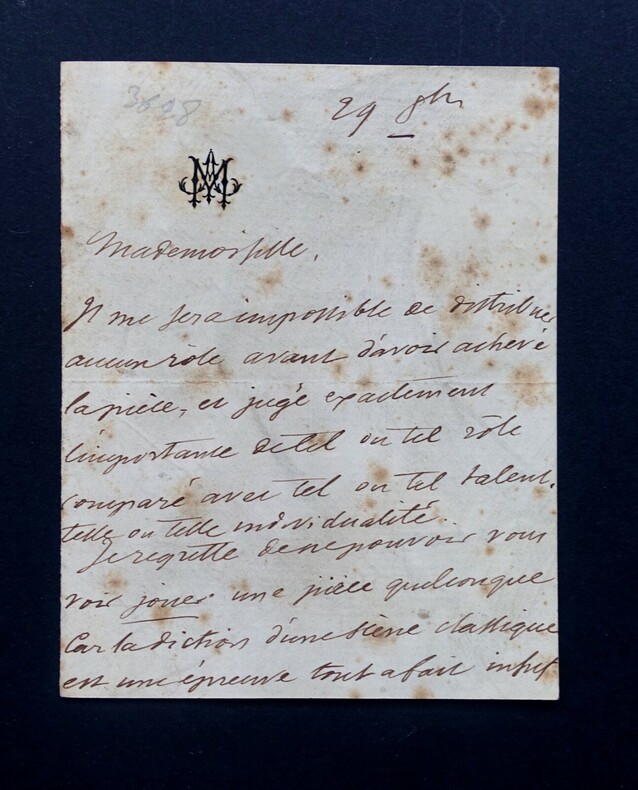 3828
29 8bre
Mademoiselle,
Il me sera impossible de distribuer
aucun rôle avant d'avoir achevé
la pièce, et jugé exactement
l'importance de tel ou tel rôle
comparé avec tel ou tel talent,
telle ou telle individualité.
Je regrette de ne pouvoir vous
voir jouer une pièce quelconque
Car la diction d'une scène classique
est une épreuve tout a fait insuf